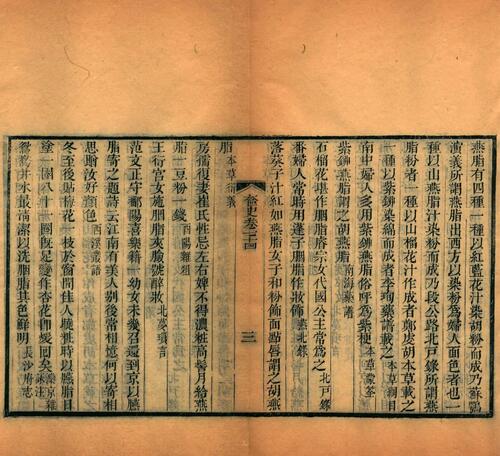 燕脂有四種一種以紅藍花汁染粉而成乃蘇鶚
演義所謂燕脂出西方以染粉為婦人面色者也一
種以山燕脂汁染粉而成乃段公路北戶錄所謂燕
脂粉者一種以山榴花汁作成者鄭虔胡本草載之
一種以紫鉚染綿而成者李珣本草謂載之 本草綱目
南中婦人多用紫鉚燕脂俗呼為紫梗 本草蒙筌
紫鉚燕脂謂之胡燕脂 南海藥譜
石榴花堪作胭脂睿宗女代國公主常為之 北戶錄
番婦人常時用蓬子胭脂作妝飾 燕北錄
落葵子汁紅如燕脂女子和粉飾面點唇謂之胡燕
奩史卷
三
脂 本草衍義
房孺復妻崔氏性忌左右婢不得濃妝高髻月給燕
脂一豆粉一錢 酉陽雜俎
王衍宮女施胭脂夾臉號醉妝 北夢瑣言
范文正守鄱陽喜樂籍一幼女未幾召還到京以臙
脂寄之題詩云江南有美人別後常相憶何以寄相
思贈汝好顏色 西溪叢語
冬至後貼梅花一枝於窗間佳人曉粧時以臙脂日
塗一圈八十一圈既足變作杏花即暖回矣
鴛鴦井水最清潔以洗胭脂其色鮮明 長沙府志